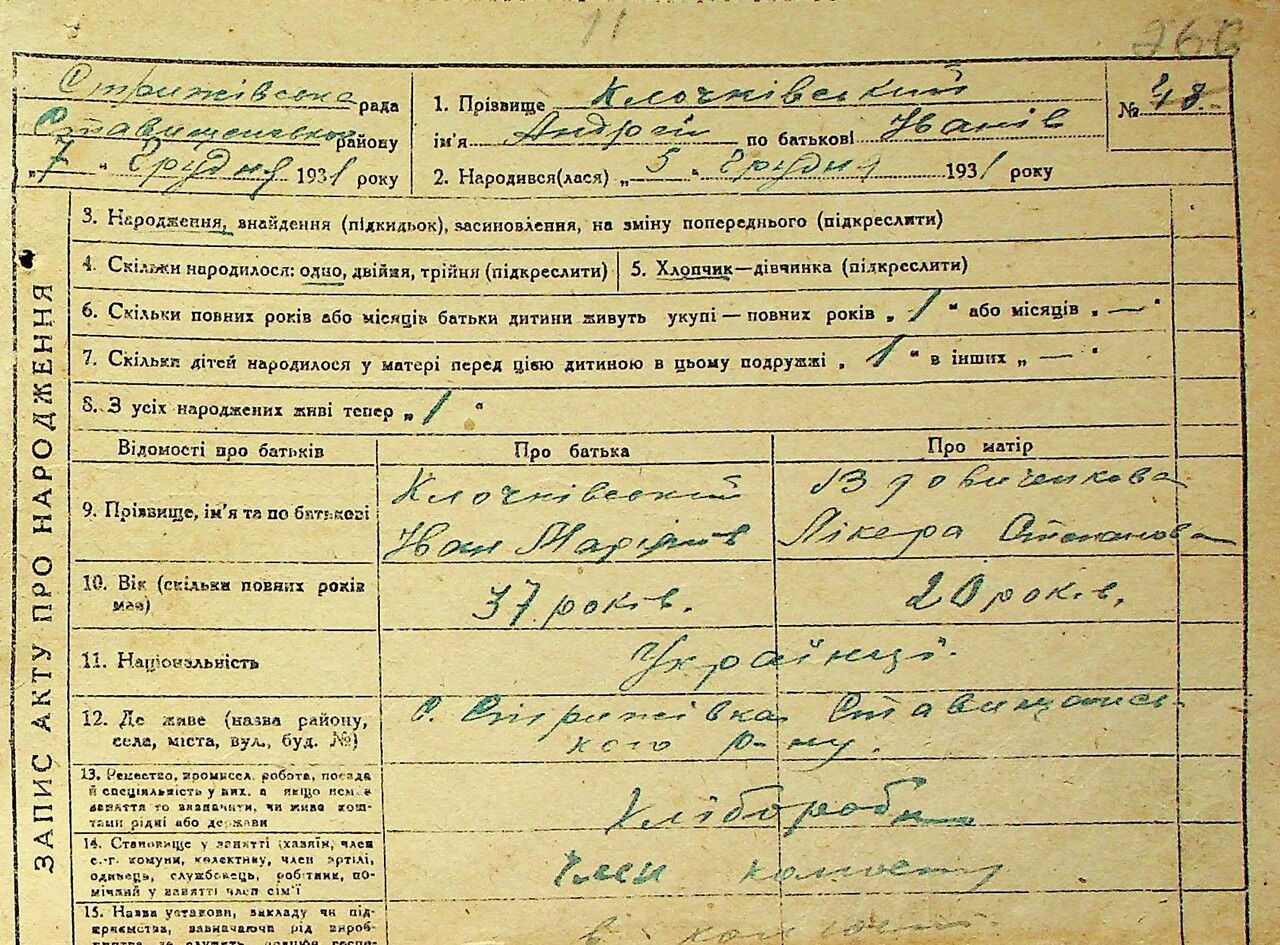 11
266
Стрижівська рада
Ставищенського району
„7" Грудня 1931 року
1. Прізвище Клочківський
ім'я Андрій по батькові Іванів
2. Народився(лася) „5" Грудня 1931 року
№ 48.
ЗАПИС АКТУ ПРО НАРОДЖЕННЯ
3. Народження, знайдення (підкидьок), засиновлення, на зміну попереднього (підкреслити)
4. Скільки народилося: одно, двійня, трійня (підкреслити)
5. Хлопчик—дівчинка (підкреслити)
6. Скільки повних років або місяців батьки дитини живуть укупі — повних років „1" або місяців „—"
7. Скільки дітей народилося у матері перед цією дитиною в цьому подружжі „1" в інших „—"
8. З усіх народжених живі тепер „1"
Відомості про батьків
Про батька
Про матір
9. Прізвище, ім'я та по батькові
Клочківський
Іван
Вдовиченкова
Лікера Степанова
10. Вік (скільки повних років має)
37 років.
20 років.
11. Національність
Українці.
12. Де живе (назва району,
села, міста, вул., буд. №)
с. Стрижівка Ставищенсь-
кого р-ну.
13. Ремество, промисел, робота, посада
й спеціяльність у них, а якщо немає
заняття то зазначати, чи живе кош-
тами рідні або держави
Хлібороби
14. Становище у занятті (хазяїн, член
с.-г. комуни, колективу, член артілі,
одинець, службовець, робітник, по-
мічний у занятті член сім'ї
Член
15. Назва установи, закладу чи під-
приємства, зазначаючи рід вироб-
в